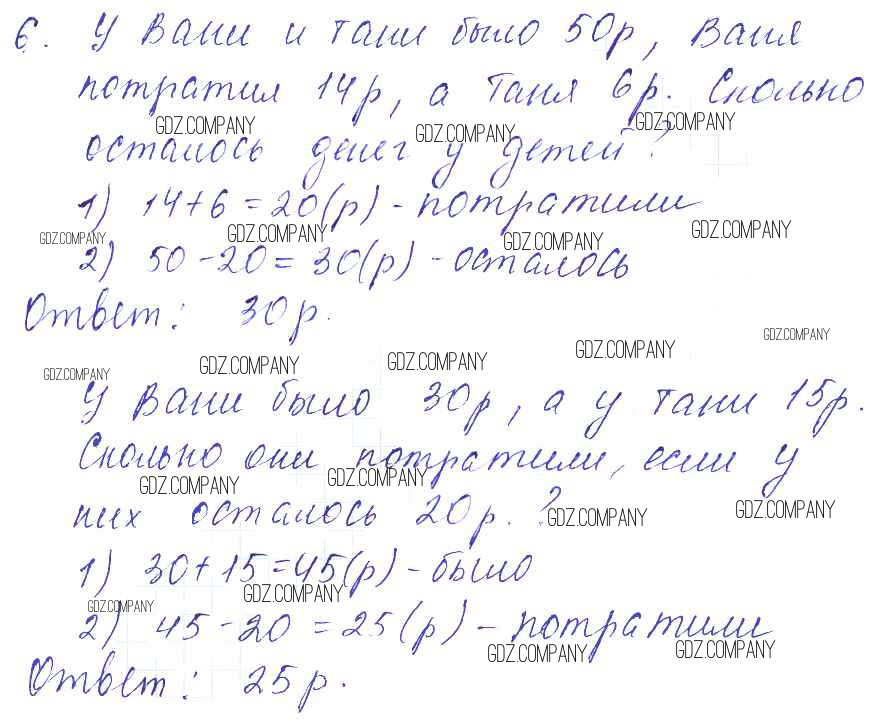 6. У Вани и Тани было 50р, Ваня
потратил 14р, а Таня 6р. Сколько
GDZ.COMPANY GDZ.COMPANY GDZ.COMPANY
осталось денег у детей?
1) 14+6=20(р) - потратили
GDZ.COMPANY GDZ.COMPANY GDZ.COMPANY GDZ.COMPANY
2) 50-20=30(р) - осталось
Ответ: 30р.
GDZ.COMPANY GDZ.COMPANY GDZ.COMPANY GDZ.COMPANY GDZ.COMPANY
У Вани было 30р, а у Тани 15р.
Сколько они потратили, если у
GDZ.COMPANY GDZ.COMPANY
них осталось 20р.?
GDZ.COMPANY GDZ.COMPANY
1) 30+15=45(р) - было
GDZ.COMPANY GDZ.COMPANY
2) 45-20=25(р) - потратили
GDZ.COMPANY GDZ.COMPANY
Ответ: 25р.